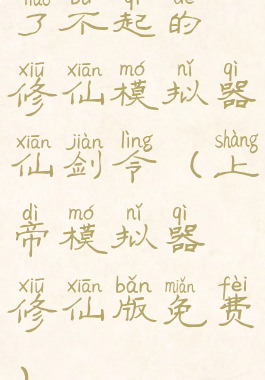 le bù qǐ de
了不起的
xiū xiān mó nǐ qì
修仙模拟器
xiān jiàn lìng shàng
仙剑令（上
dì mó nǐ qì
帝模拟器
xiū xiān bǎn miǎn fèi
修仙版免费
）